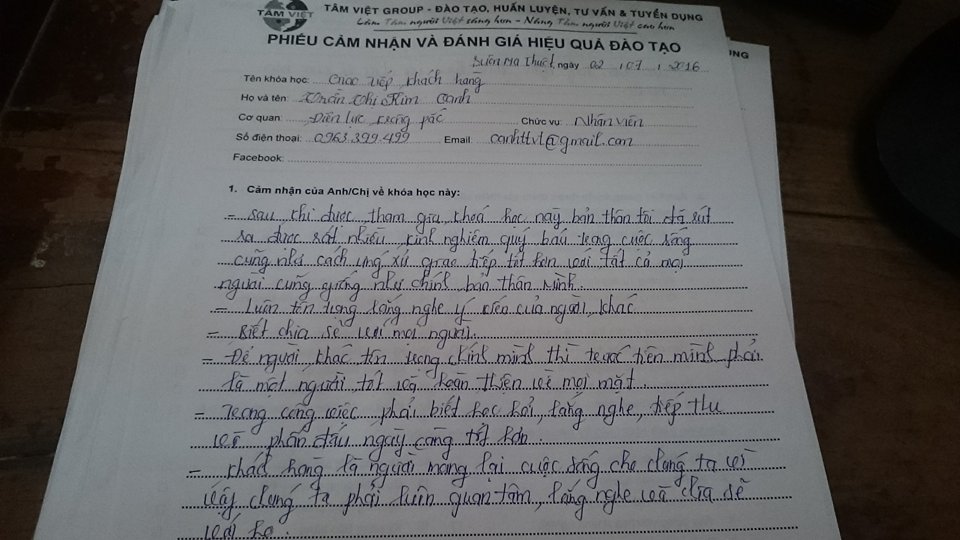 TÂM VIỆT
TÂM VIỆT GROUP - ĐÀO TẠO, HUẤN LUYỆN, TƯ VẤN & TUYỂN DỤNG
Làm Tâm người Việt sáng hơn - Nâng Tầm người Việt cao hơn
PHIẾU CẢM NHẬN VÀ ĐÁNH GIÁ HIỆU QUẢ ĐÀO TẠO
Buôn Ma Thuột, ngày 02 / 07 / 2016
Tên khóa học: Giao tiếp khách hàng
Họ và tên: Trần Thị Kim Oanh
Cơ quan: Điện lực krông pắc Chức vụ: Nhân viên
Số điện thoại: 0963.399.499 Email: oanhttvt@gmail.com
Facebook:
1. Cảm nhận của Anh/Chị về khóa học này:
- sau khi được tham gia khoá học này bản thân tôi đã rút
ra được rất nhiều kinh nghiệm quý báu trong cuộc sống
cũng như cách ứng xử giao tiếp tốt hơn với tất cả mọi
người cũng giống như chính bản thân mình.
- Luôn tôn trọng lắng nghe ý kiến của người khác
- Biết chia sẻ với mọi người.
- Để người khác tôn trọng chính mình thì trước tiên mình phải
là một người tốt và hoàn thiện về mọi mặt.
- Trong công việc phải biết học hỏi, lắng nghe, tiếp thu
và phấn đấu ngày càng tốt hơn.
- khách hàng là người mang lại cuộc sống cho chúng ta vì
vậy chúng ta phải luôn quan tâm, lắng nghe và chia sẻ
với họ.